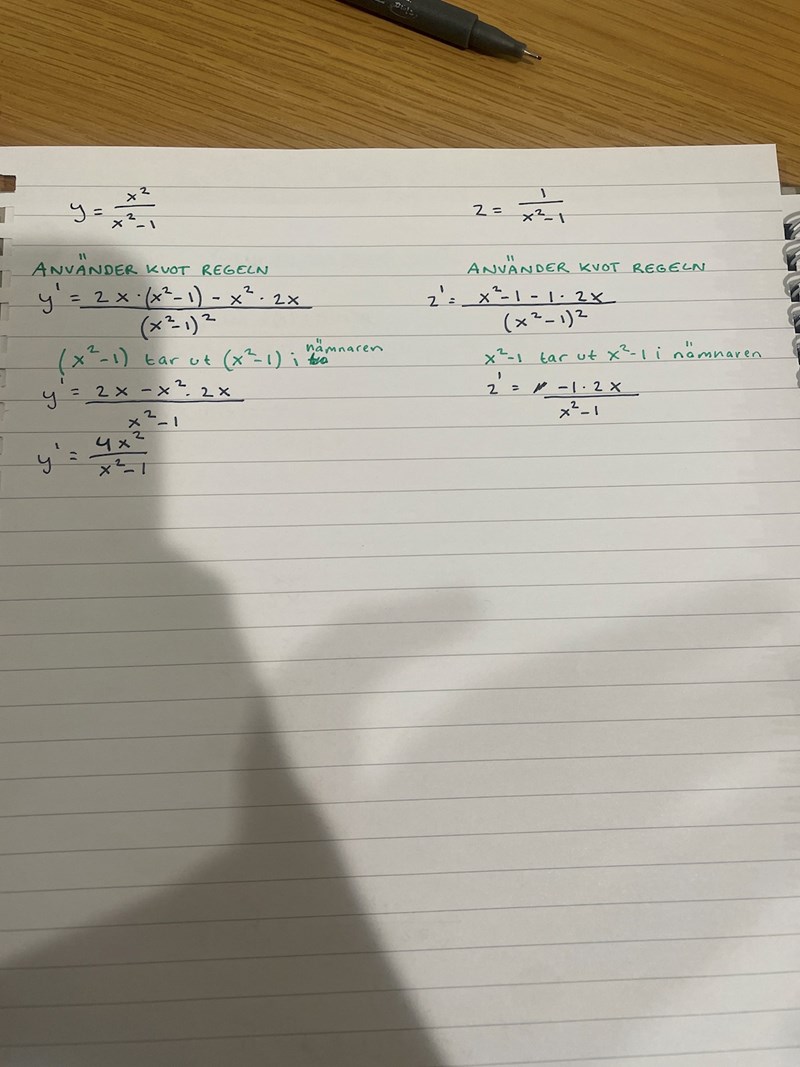 y = x²/(x²-1)
ANVÄNDER KVOT REGELN
y' = (2x·(x²-1) - x²·2x)/(x²-1)²
(x²-1) tar ut (x²-1) i nämnaren
y' = (2x - x²·2x)/(x²-1)
y' = 4x²/(x²-1)
z = 1/(x²-1)
ANVÄNDER KVOT REGELN
z' = (x²-1 - 1·2x)/(x²-1)²
x²-1 tar ut x²-1 i nämnaren
z' = (-1·2x)/(x²-1)